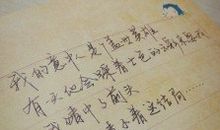 我的意中人是个盖世英雄
有天他会踩着七色的云彩来娶我
我猜中了前头
着这结局……